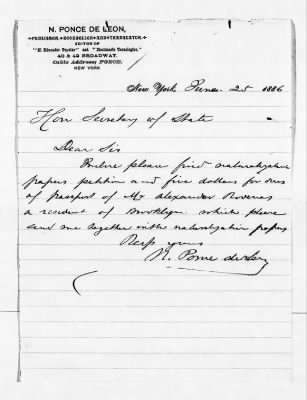 N. PONCE DE LEON,
PUBLISHER, BOOKSELLER AND STEREOTYPER,
EDITOR OF
"El Educador Popular" and "Diccionario Tecnologico."
40 & 42 BROADWAY.
Cable Address: PONCE.
NEW YORK
New York, June 25 1886
Hon Secretary of State
Dear Sir
Inclose please find naturalization
papers petition and five dollars for
of passport of Mr Alexander
a resident of Brooklyn which please
send me together with naturalization papers
Resp yours
N. Ponce de Leon